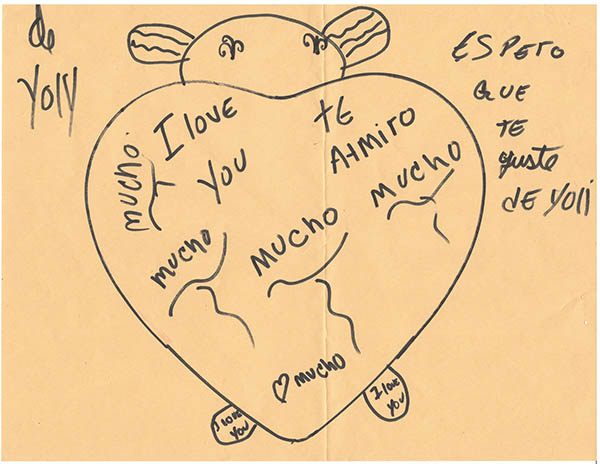 de
YOlY
I LOVE
YOU
TE
ATMIRO
mucho
mucho
mucho
MUCHO
MUCHO
I LOVE
YOU
I love
YOU
ESPERO
QUE
TE
guste
de YOli